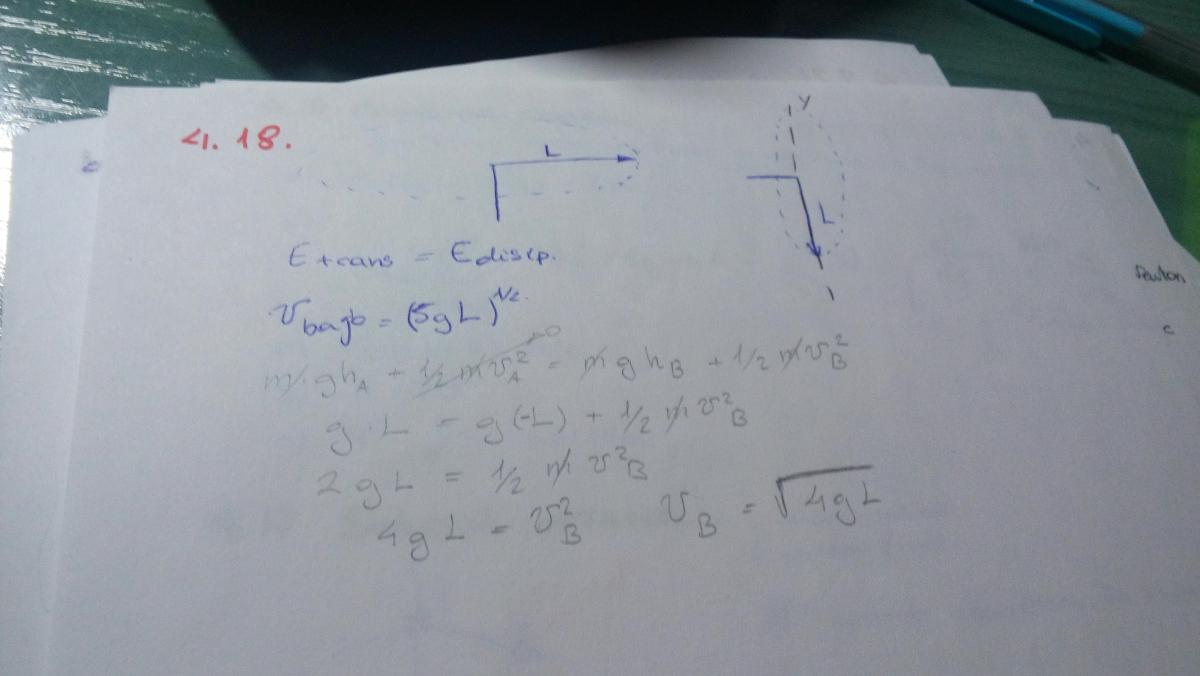 4.18.
L
y
L
E trans = E disip.
v bajo = (5gL)^1/2.
m g h_A + 1/2 m v_A^2 →0 = m g h_B + 1/2 m v_B^2
g · L = g(-L) + 1/2 m v^2_B
2 g L = 1/2 m v^2_B
4 g L = v_B^2 v_B = √4gL